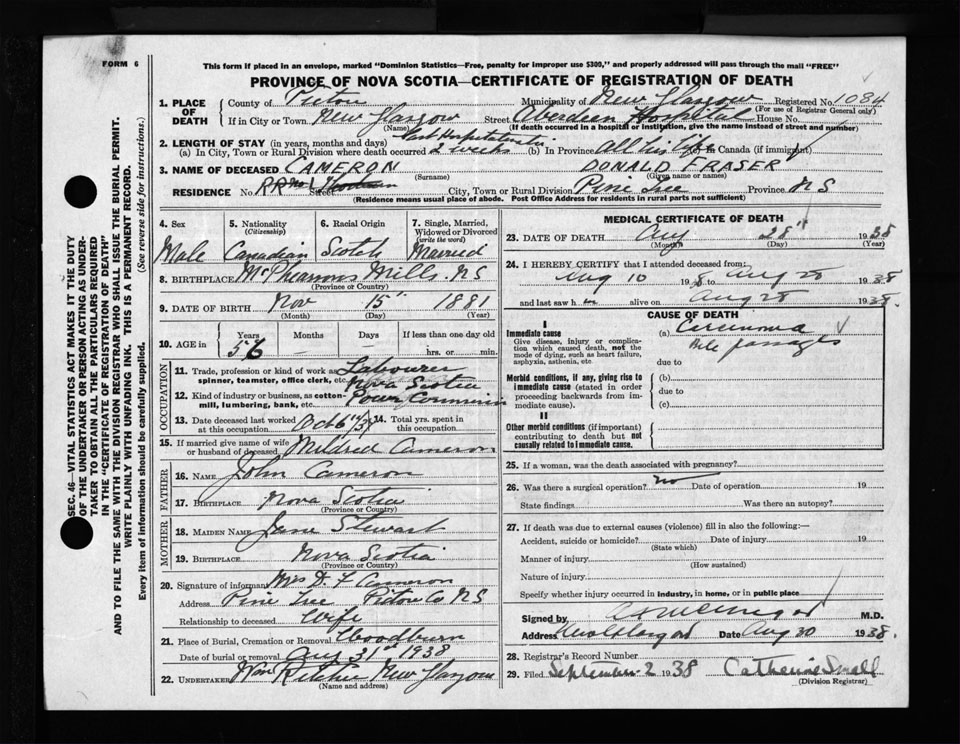 FORM 6
This form if placed in an envelope, marked "Dominion Statistics—Free, penalty for improper use $300," and properly addressed will pass through the mail "FREE"
PROVINCE OF NOVA SCOTIA—CERTIFICATE OF REGISTRATION OF DEATH
1. PLACE OF DEATH
County of Pictou Municipality of New Glasgow Registered No. 1084
(For use of Registrar General only)
If in City or Town New Glasgow Street Aberdeen Hospital House No.
(Name) (If death occurred in a hospital or institution, give the name instead of street and number)
2. LENGTH OF STAY (in years, months and days)
(a) In City, Town or Rural Division where death occurred 2 weeks (b) In Province all his life Canada (if immigrant)
3. NAME OF DECEASED CAMERON DONALD FRASER
(Surname) (Given name or names)
RESIDENCE No. RR No 1 Street City, Town or Rural Division Pine Tree Province N S
(Residence means usual place of abode. Post Office Address for residents in rural parts not sufficient)
4. Sex 5. Nationality (Citizenship) 6. Racial Origin 7. Single, Married, Widowed or Divorced (write the word)
Male Canadian Scotch Married
8. BIRTHPLACE McPhersons Mills. NS
(Province or Country)
9. DATE OF BIRTH Nov 15" 1881
(Month) (Day) (Year)
10. AGE in Years Months Days If less than one day old
56 — — hrs. or min.
OCCUPATION
11. Trade, profession or kind of work as spinner, teamster, office clerk, etc. Labourer
12. Kind of industry or business, as cotton-mill, lumbering, bank, etc. Nova Scotia Power Commission
13. Date deceased last worked at this occupation Oct 6
14. Total yrs. spent in this occupation
15. If married give name of wife or husband of deceased Mildred Cameron
FATHER
16. NAME John Cameron
17. BIRTHPLACE Nova Scotia
(Province or Country)
MOTHER
18. MAIDEN NAME Jane Stewart
19. BIRTHPLACE Nova Scotia
(Province or Country)
20. Signature of informant Mrs D. F Cameron
Address Pine Tree Pictou Co NS
Relationship to deceased Wife
21. Place of Burial, Cremation or Removal Woodburn
Date of burial or removal Aug 31st 1938
22. UNDERTAKER Wm Ritchie New Glasgow
(Name and address)
MEDICAL CERTIFICATE OF DEATH
23. DATE OF DEATH Aug 28" 1938
(Month) (Day) (Year)
24. I HEREBY CERTIFY that I attended deceased from:
Aug 10 1938 Aug 28 1938
and last saw h im alive on Aug 28 1938.
CAUSE OF DEATH
I
Immediate cause (a) Carcinoma
Give disease, injury or complication which caused death, not the mode of dying, such as heart failure, asphyxia, asthenia, etc. Bile passages
due to
Morbid conditions, if any, giving rise to immediate cause (stated in order proceeding backwards from immediate cause). (b)
due to
(c)
II
Other morbid conditions (if important) contributing to death but not causally related to immediate cause.
25. If a woman, was the death associated with pregnancy?
26. Was there a surgical operation? no Date of operation 19
State findings Was there an autopsy?
27. If death was due to external causes (violence) fill in also the following:—
Accident, suicide or homicide? Date of injury 19
(State which)
Manner of injury
(How sustained)
Nature of injury
Specify whether injury occurred in industry, in home, or in public place
Signed by M.D.
Address New Glasgow Date Aug 30 1938.
28. Registrar's Record Number
29. Filed September 2 1938 Catherine Small
(Division Registrar)
SEC. 46—VITAL STATISTICS ACT MAKES IT THE DUTY
OF THE UNDERTAKER OR PERSON ACTING AS UNDERTAKER
TO OBTAIN ALL THE PARTICULARS REQUIRED
IN THE "CERTIFICATE OF REGISTRATION OF DEATH"
AND TO FILE THE SAME WITH THE DIVISION REGISTRAR WHO SHALL ISSUE THE BURIAL PERMIT.
WRITE PLAINLY WITH UNFADING INK. THIS IS A PERMANENT RECORD.
Every item of information should be carefully supplied. (See reverse side for instructions.)